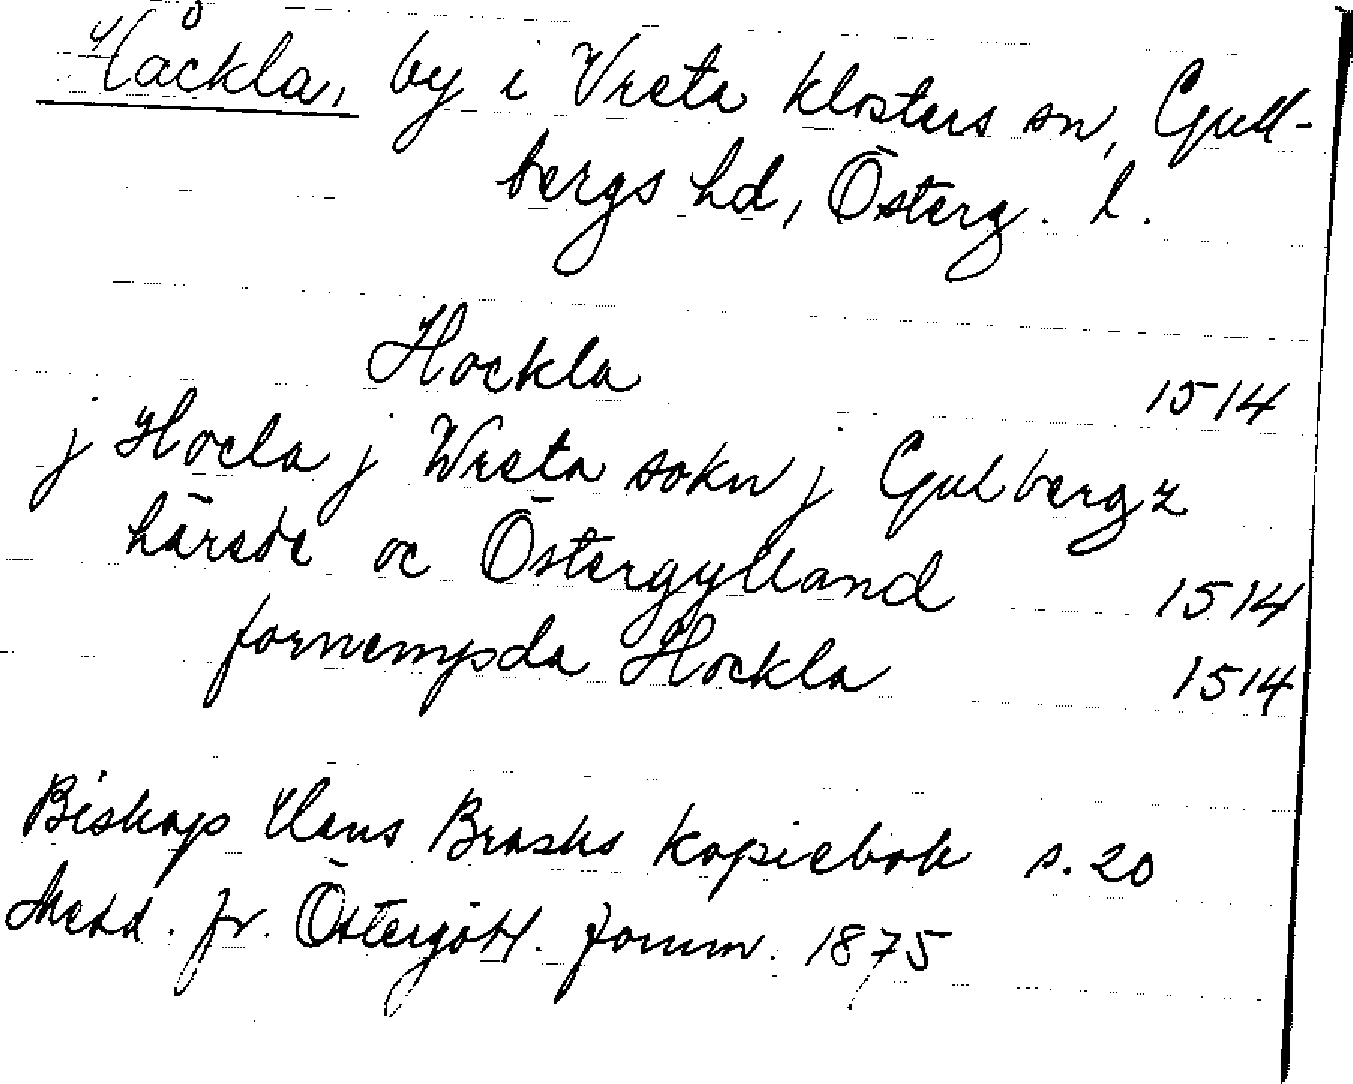 Håckla, by i Vreta klosters sn, Gull-
bergs hd, Österg. l.
Hockla 1514
j Hocla j Wreta sokn j Gulbergz
härede oc Östergylland 1514
fornempda Hockla 1514
Biskop Hans Brasks kopiebok s. 20
Medd. fr. Östergötl. fornm. 1875